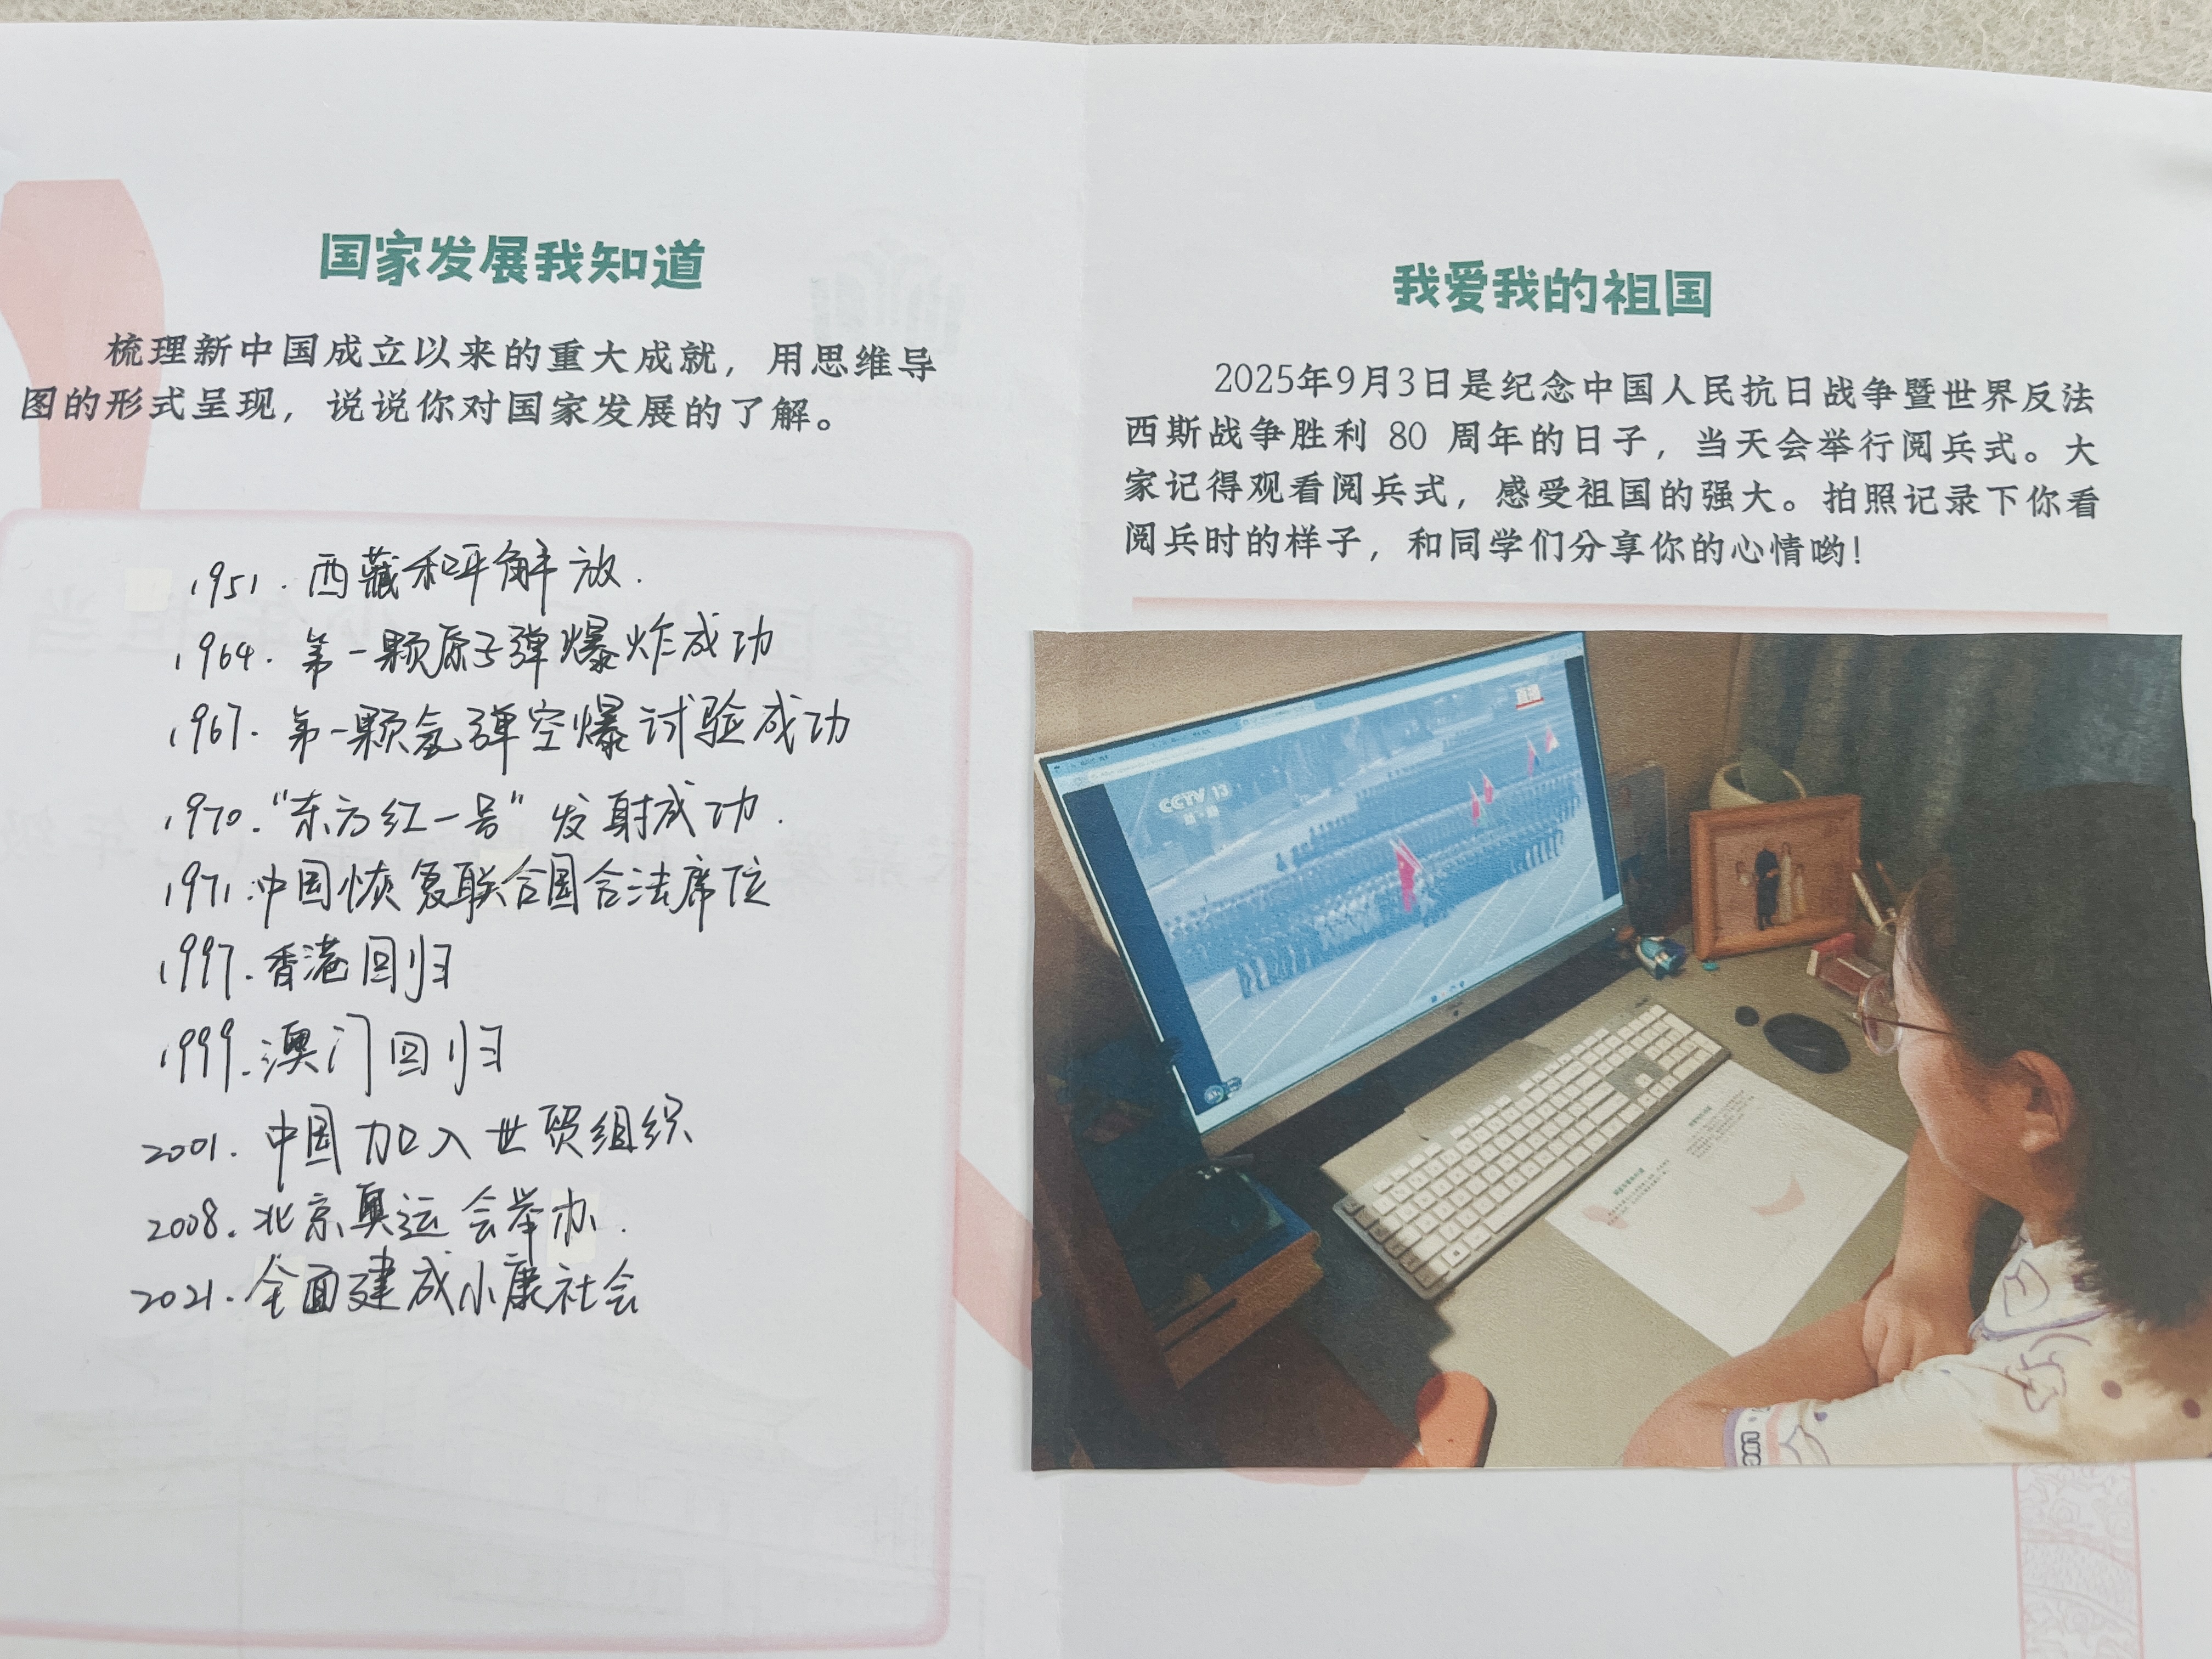 国家发展我知道
梳理新中国成立以来的重大成就，用思维导
图的形式呈现，说说你对国家发展的了解。
1951. 西藏和平解放.
1964. 第一颗原子弹爆炸成功
1967. 第一颗氢弹空爆试验成功
1970. “东方红一号” 发射成功.
1971. 中国恢复联合国合法席位
1997. 香港回归
1999. 澳门回归
2001. 中国加入世贸组织
2008. 北京奥运会举办.
2021. 全面建成小康社会
我爱我的祖国
2025年9月3日是纪念中国人民抗日战争暨世界反法
西斯战争胜利 80 周年的日子，当天会举行阅兵式。大
家记得观看阅兵式，感受祖国的强大。拍照记录下你看
阅兵时的样子，和同学们分享你的心情哟！
CCTV 13
直播